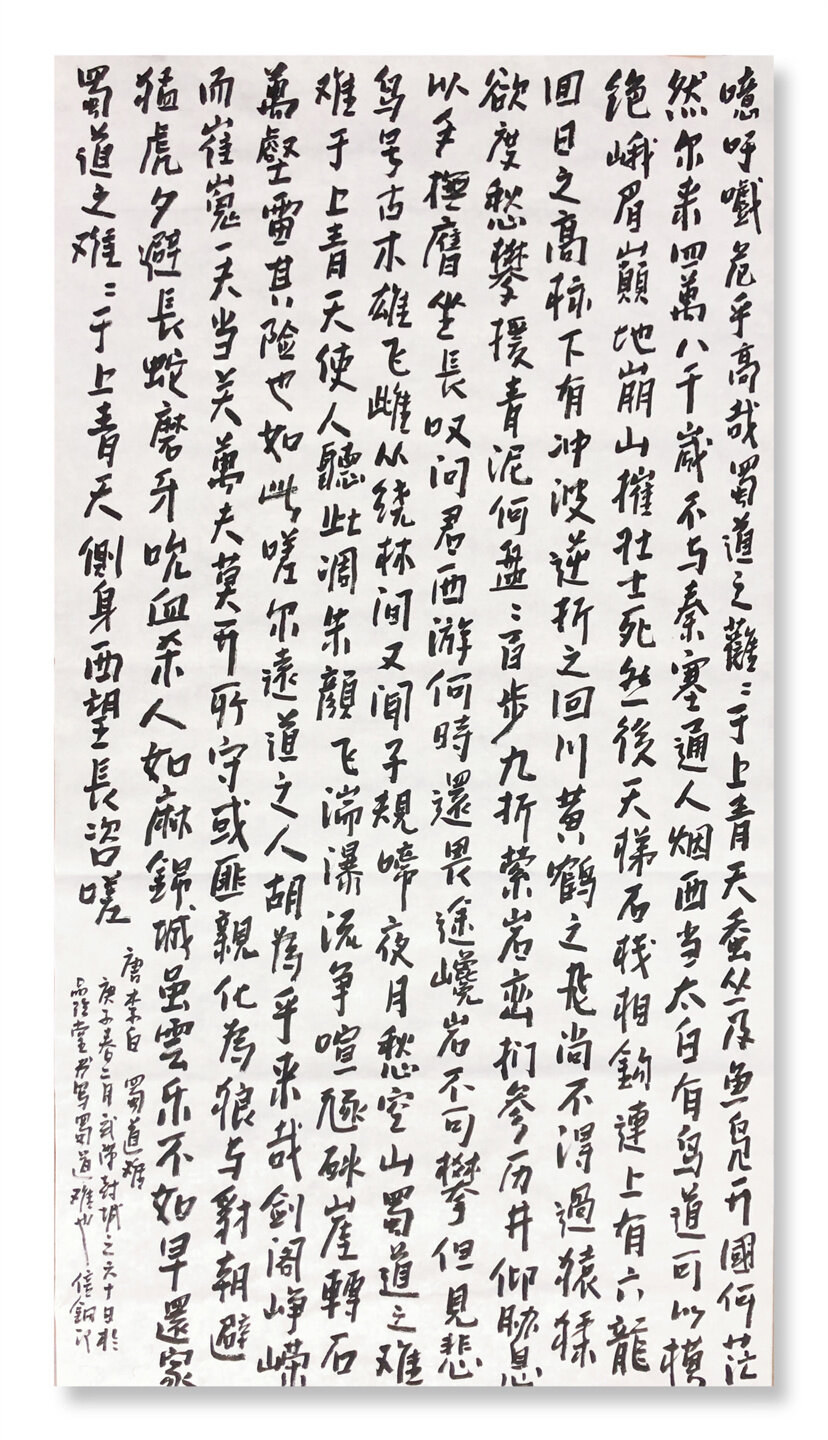 噫吁嚱危乎高哉蜀道之難〻于上青天蚕丛及鱼凫开國何茫
然尔来四萬八千歲不与秦塞通人烟西当太白有鸟道可以横
绝峨眉巔地崩山摧壮士死然後天梯石栈相鈎連上有六龍
回日之高标下有冲波逆折之回川黄鶴之飛尚不得過猿猱
欲度愁攀援青泥何盘〻百步九折萦岩峦扪参历井仰胁息
以手撫膺坐長叹问君西游何時還畏途巉岩不可攀但見悲
鸟号古木雄飞雌从绕林间又闻子規啼夜月愁空山蜀道之难
难于上青天使人聽此凋朱顏飞湍瀑流争喧豗砯崖轉石
萬壑雷其险也如此嗟尔遠道之人胡為乎来哉剑阁峥嵘
而崔嵬一夫当关萬夫莫开所守或匪親化為狼与豺朝避
猛虎夕避長蛇磨牙吮血杀人如麻錦城虽雲乐不如早還家
蜀道之难〻于上青天侧身西望長咨嗟
唐李白 蜀道难
庚子春二月武漢封城之六十日於
堂书写蜀道难也 信钢